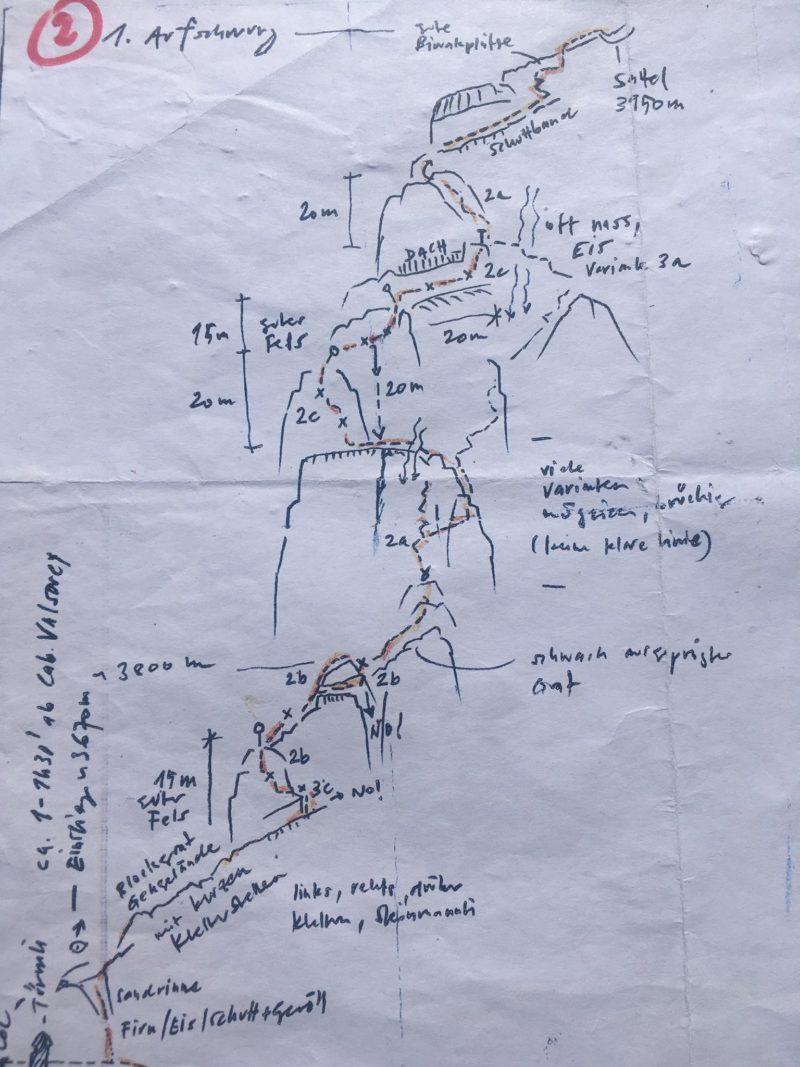 2 1. Aufschwung
gute
Biwakplätze
Sattel
3950m
Schuttband
20m
2a
oft nass,
Eis
Variante 3a
DACH
2c
20m
15m
guter
Fels
20m
20m
2c
viele
Varianten
möglich, brüchig
(keine klare Linie)
2a
3800m
2b
2b
schwach ausgeprägter
Grat
NO!
2b
15m
guter
Fels
3c
NO!
Blockgrat
Gehgelände
mit kurzen
Kletterstellen
links, rechts, drüber
klettern, Steinmannli
ca. 1-1h30' ab Cab. Valsorey
Einstieg ~3670m
Türmli
Col
Sandrinne
Firn/Eis/Schutt+Geröll